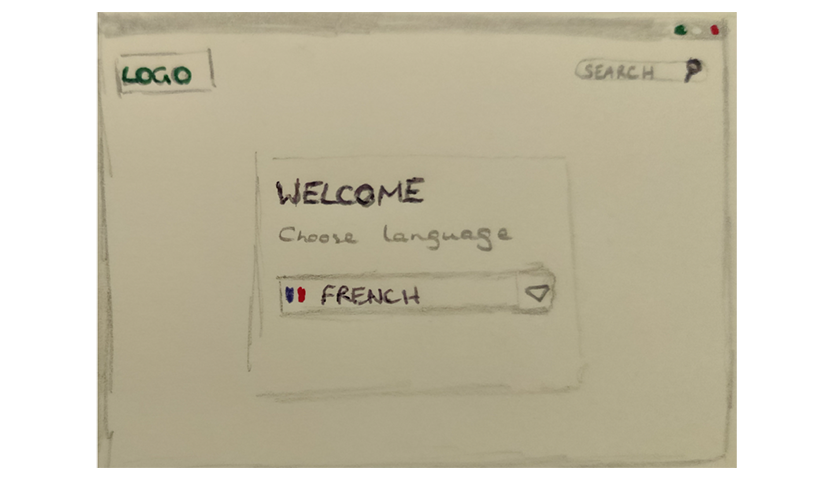 LOGO
SEARCH
WELCOME
Choose language
FRENCH